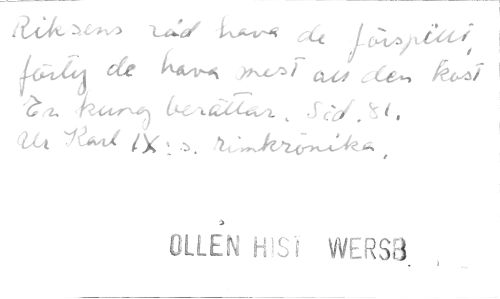 Riksens råd hava de förspillt,
förty de hava mest av den kost
En kung berättar. Sid. 81.
Ur Karl IX:s. rimkrönika.
OLLÉN HIST WERSB.